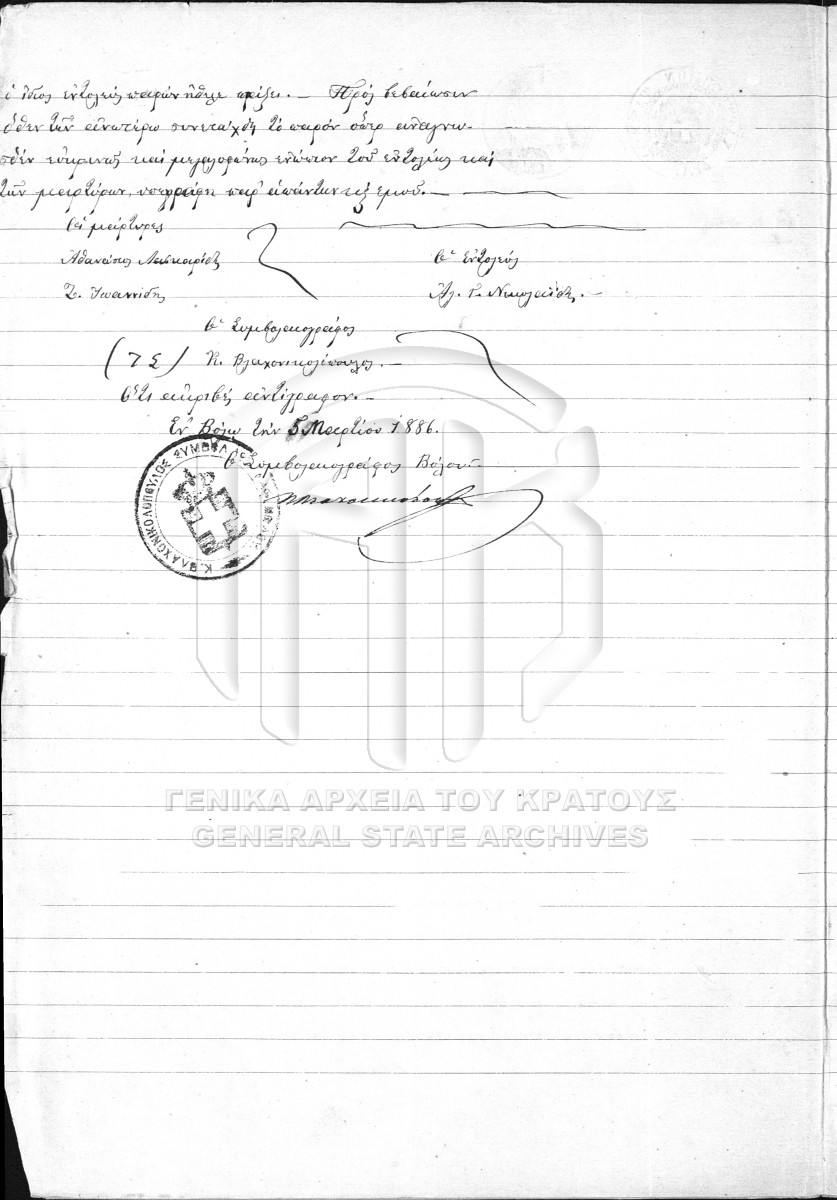 ὁ ἴδιος ἐντολεύς παρών ἤθελε πράξει. — Πρός βεβαίωσιν
ὅθεν τῶν ἀνωτέρω συνετάχθη τό παρόν ὅπερ ἀναγνω-
σθέν εὐκρινῶς καί μεγαλοφώνως ἐνώπιον τοῦ ἐντολέως καί
τῶν μαρτύρων, ὑπεγράφη παρ' ἁπάντων κ' ἐμοῦ. —
Οἱ μάρτυρες
Ἀθανάσιος Λασκαρίδης
Ὁ Ἐντολεύς
Ζ. Ἰωαννίδης
Ἀλ. Γ. Νικολαΐδης. —
Ὁ Συμβολαιογράφος
(Τ Σ) Κ. Βλαχονικολόπουλος. —
Ὅτι ἀκριβές ἀντίγραφον. —
Ἐν Βόλῳ τήν 5 Μαρτίου 1886.
Ὁ Συμβολαιογράφος Βόλου
Κ. ΒΛΑΧΟΝΙΚΟΛΟΠΟΥΛΟΣ
ΓΕΝΙΚΑ ΑΡΧΕΙΑ ΤΟΥ ΚΡΑΤΟΥΣ
GENERAL STATE ARCHIVES